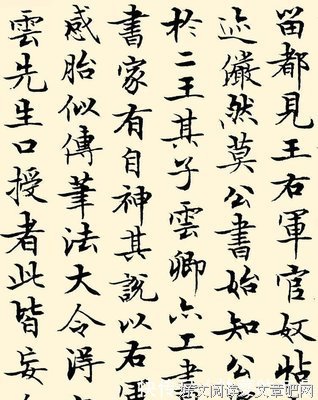 留都見王右軍官奴帖
迹儼然莫公書始知公
於二王其子雲卿亦工書
書家有自神其說以右軍
感胎似傳筆法大令得
雲先生口授者此皆妄
文阅读 文章吧网